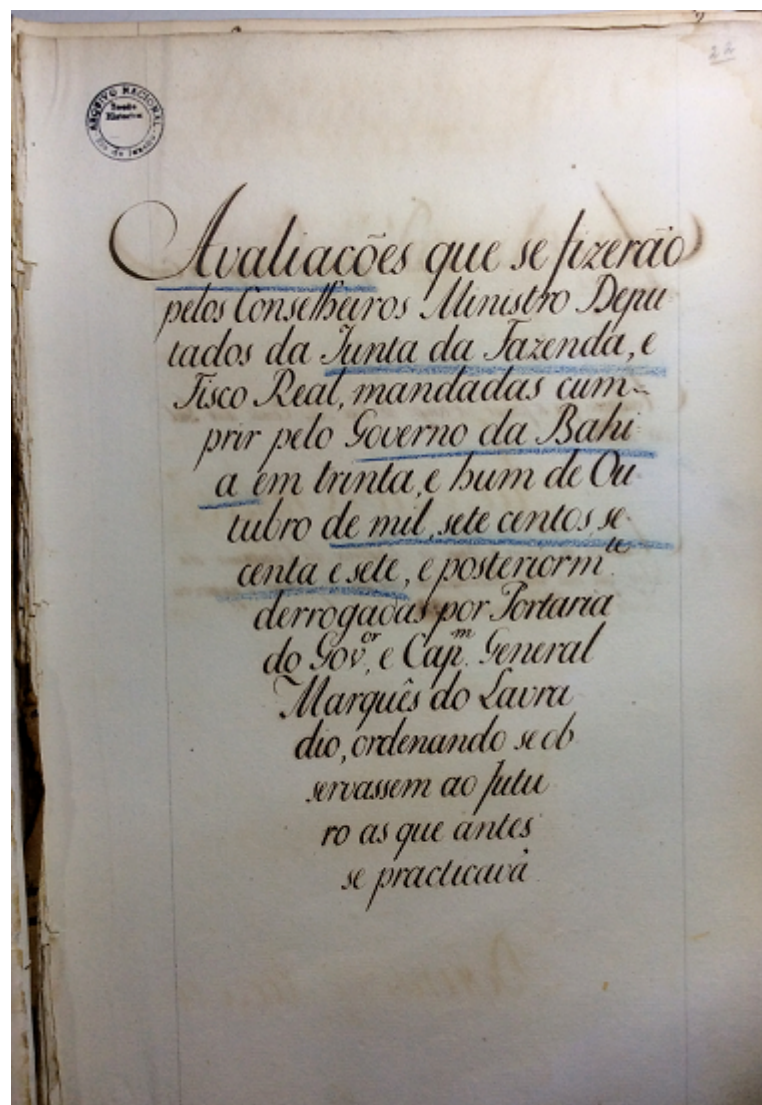 22
ARQUIVO NACIONAL
Secção
Historica
Rio de Janeiro
Avaliacões que se fizerão
pelos Conselheiros Ministro Depu
tados da Junta da Fazenda, e
Fisco Real, mandadas cum-
prir pelo Governo da Bahi
a em trinta, e hum de Ou
tubro de mil, sete centos se
centa e sete, e posteriorm.te
derrogadas por Portaria
do Gov.or, e Cap.m General
Marquês do Lavra
dio, ordenando se ob
servassem ao futu
ro as que antes
se practicavã